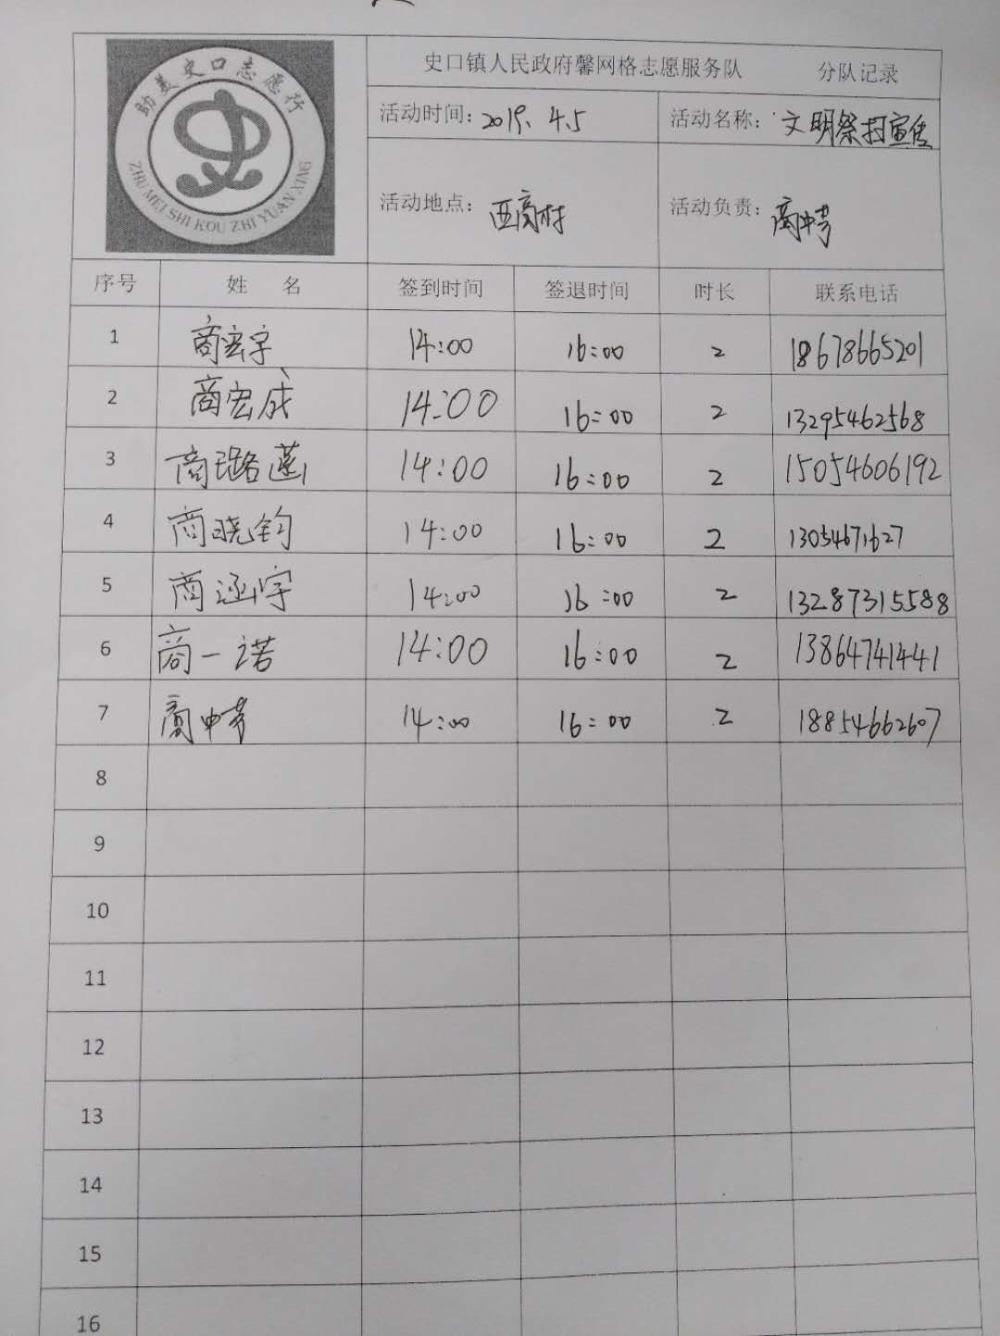 助美史口志愿行
ZHU MEI SHI KOU ZHI YUAN XING
史口镇人民政府馨网格志愿服务队 分队记录
活动时间: 2019. 4.5 活动名称: 文明祭扫宣传
活动地点: 西商村 活动负责: 商中芳
序号 姓 名 签到时间 签退时间 时长 联系电话
1 商宏宇 14:00 16:00 2 18678665201
2 商宏成 14:00 16:00 2 13295462568
3 商璐莲 14:00 16:00 2 15054606192
4 商晓钧 14:00 16:00 2 13054671627
5 商涵宇 14:00 16:00 2 13287315588
6 商一诺 14:00 16:00 2 13864741441
7 商中芳 14:00 16:00 2 18854662607
8
9
10
11
12
13
14
15
16